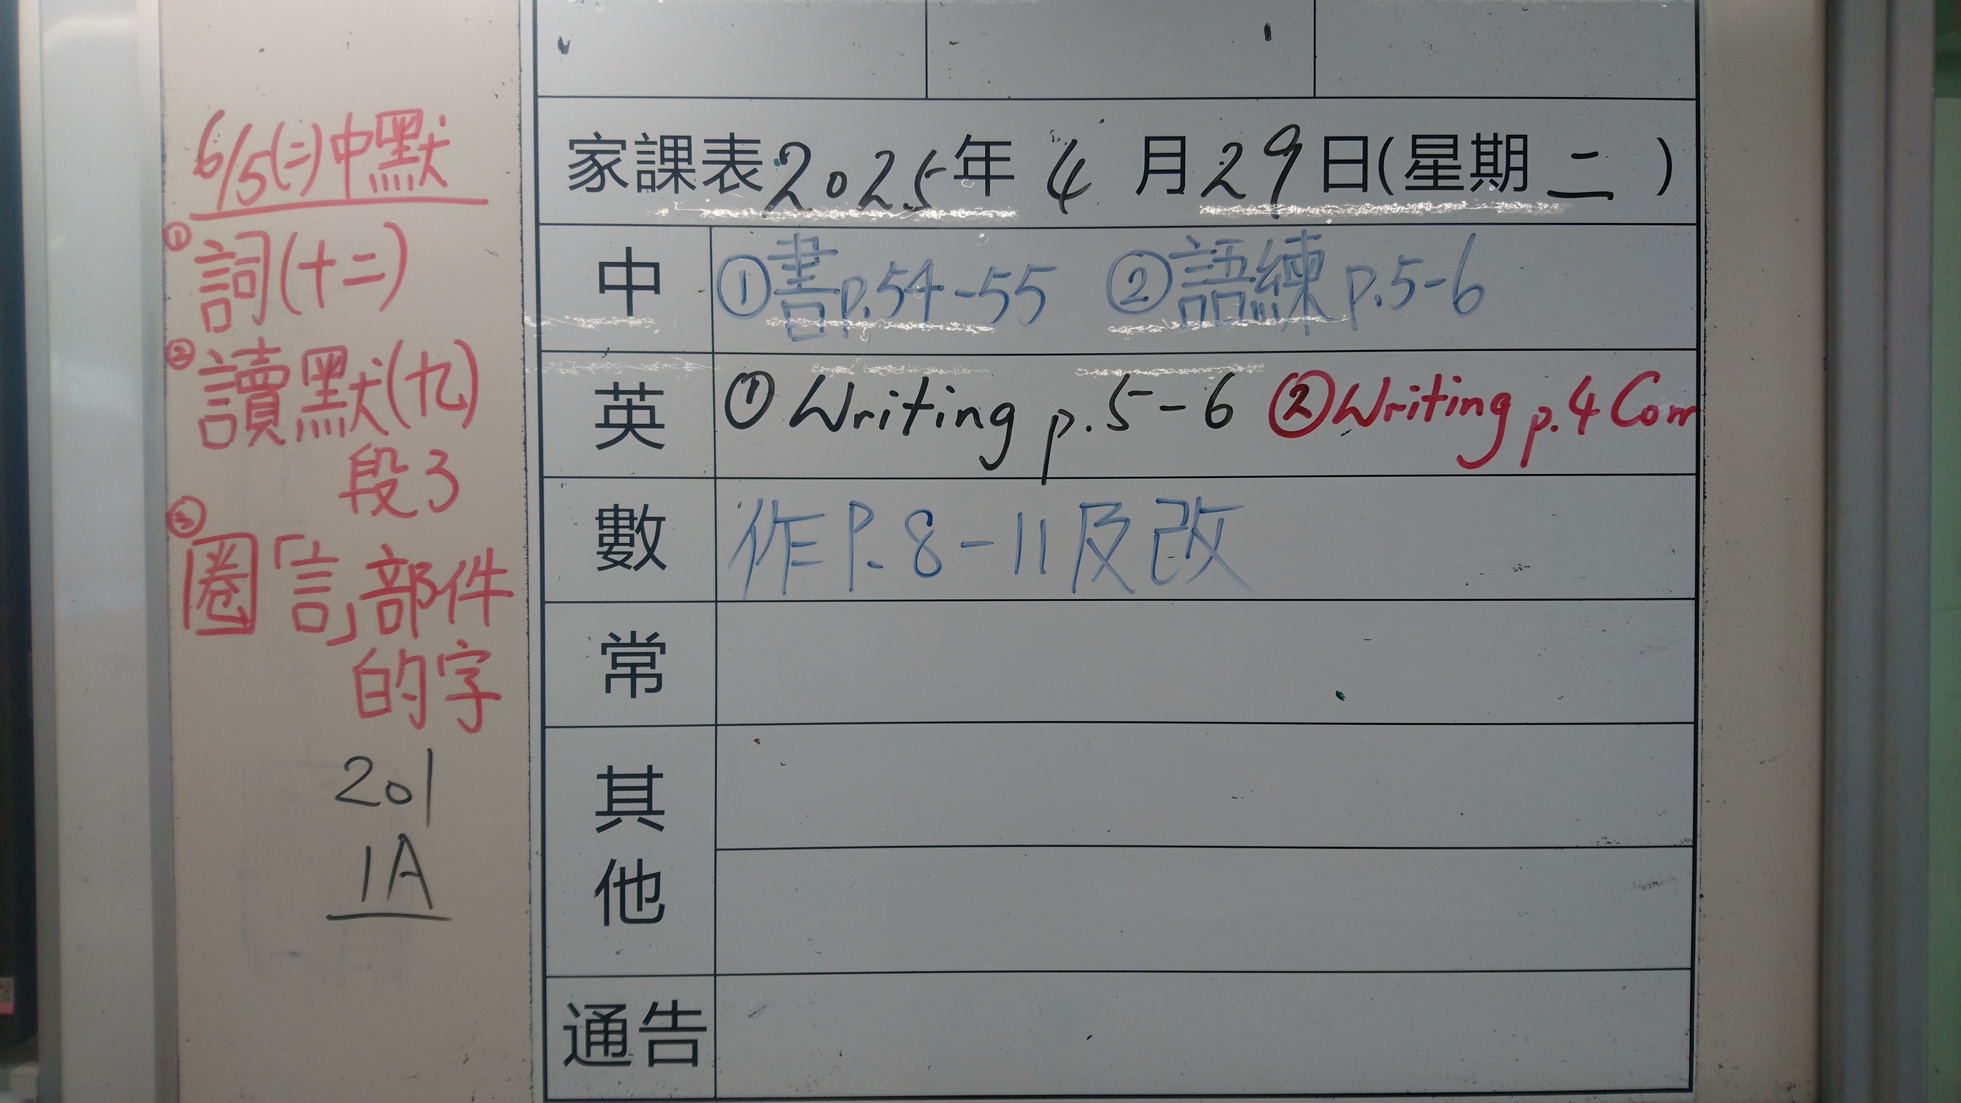 6/5(二)中默
①詞(十二)
②讀默(九)
段3
③圈「言」部件
的字
201
1A
家課表2025年 4 月29日(星期 二 )
中 ①書p.54-55 ②語練p.5-6
英 ①Writing p.5-6 ②Writing p.4 Corr
數 作P.8-11及改
常
其他
通告